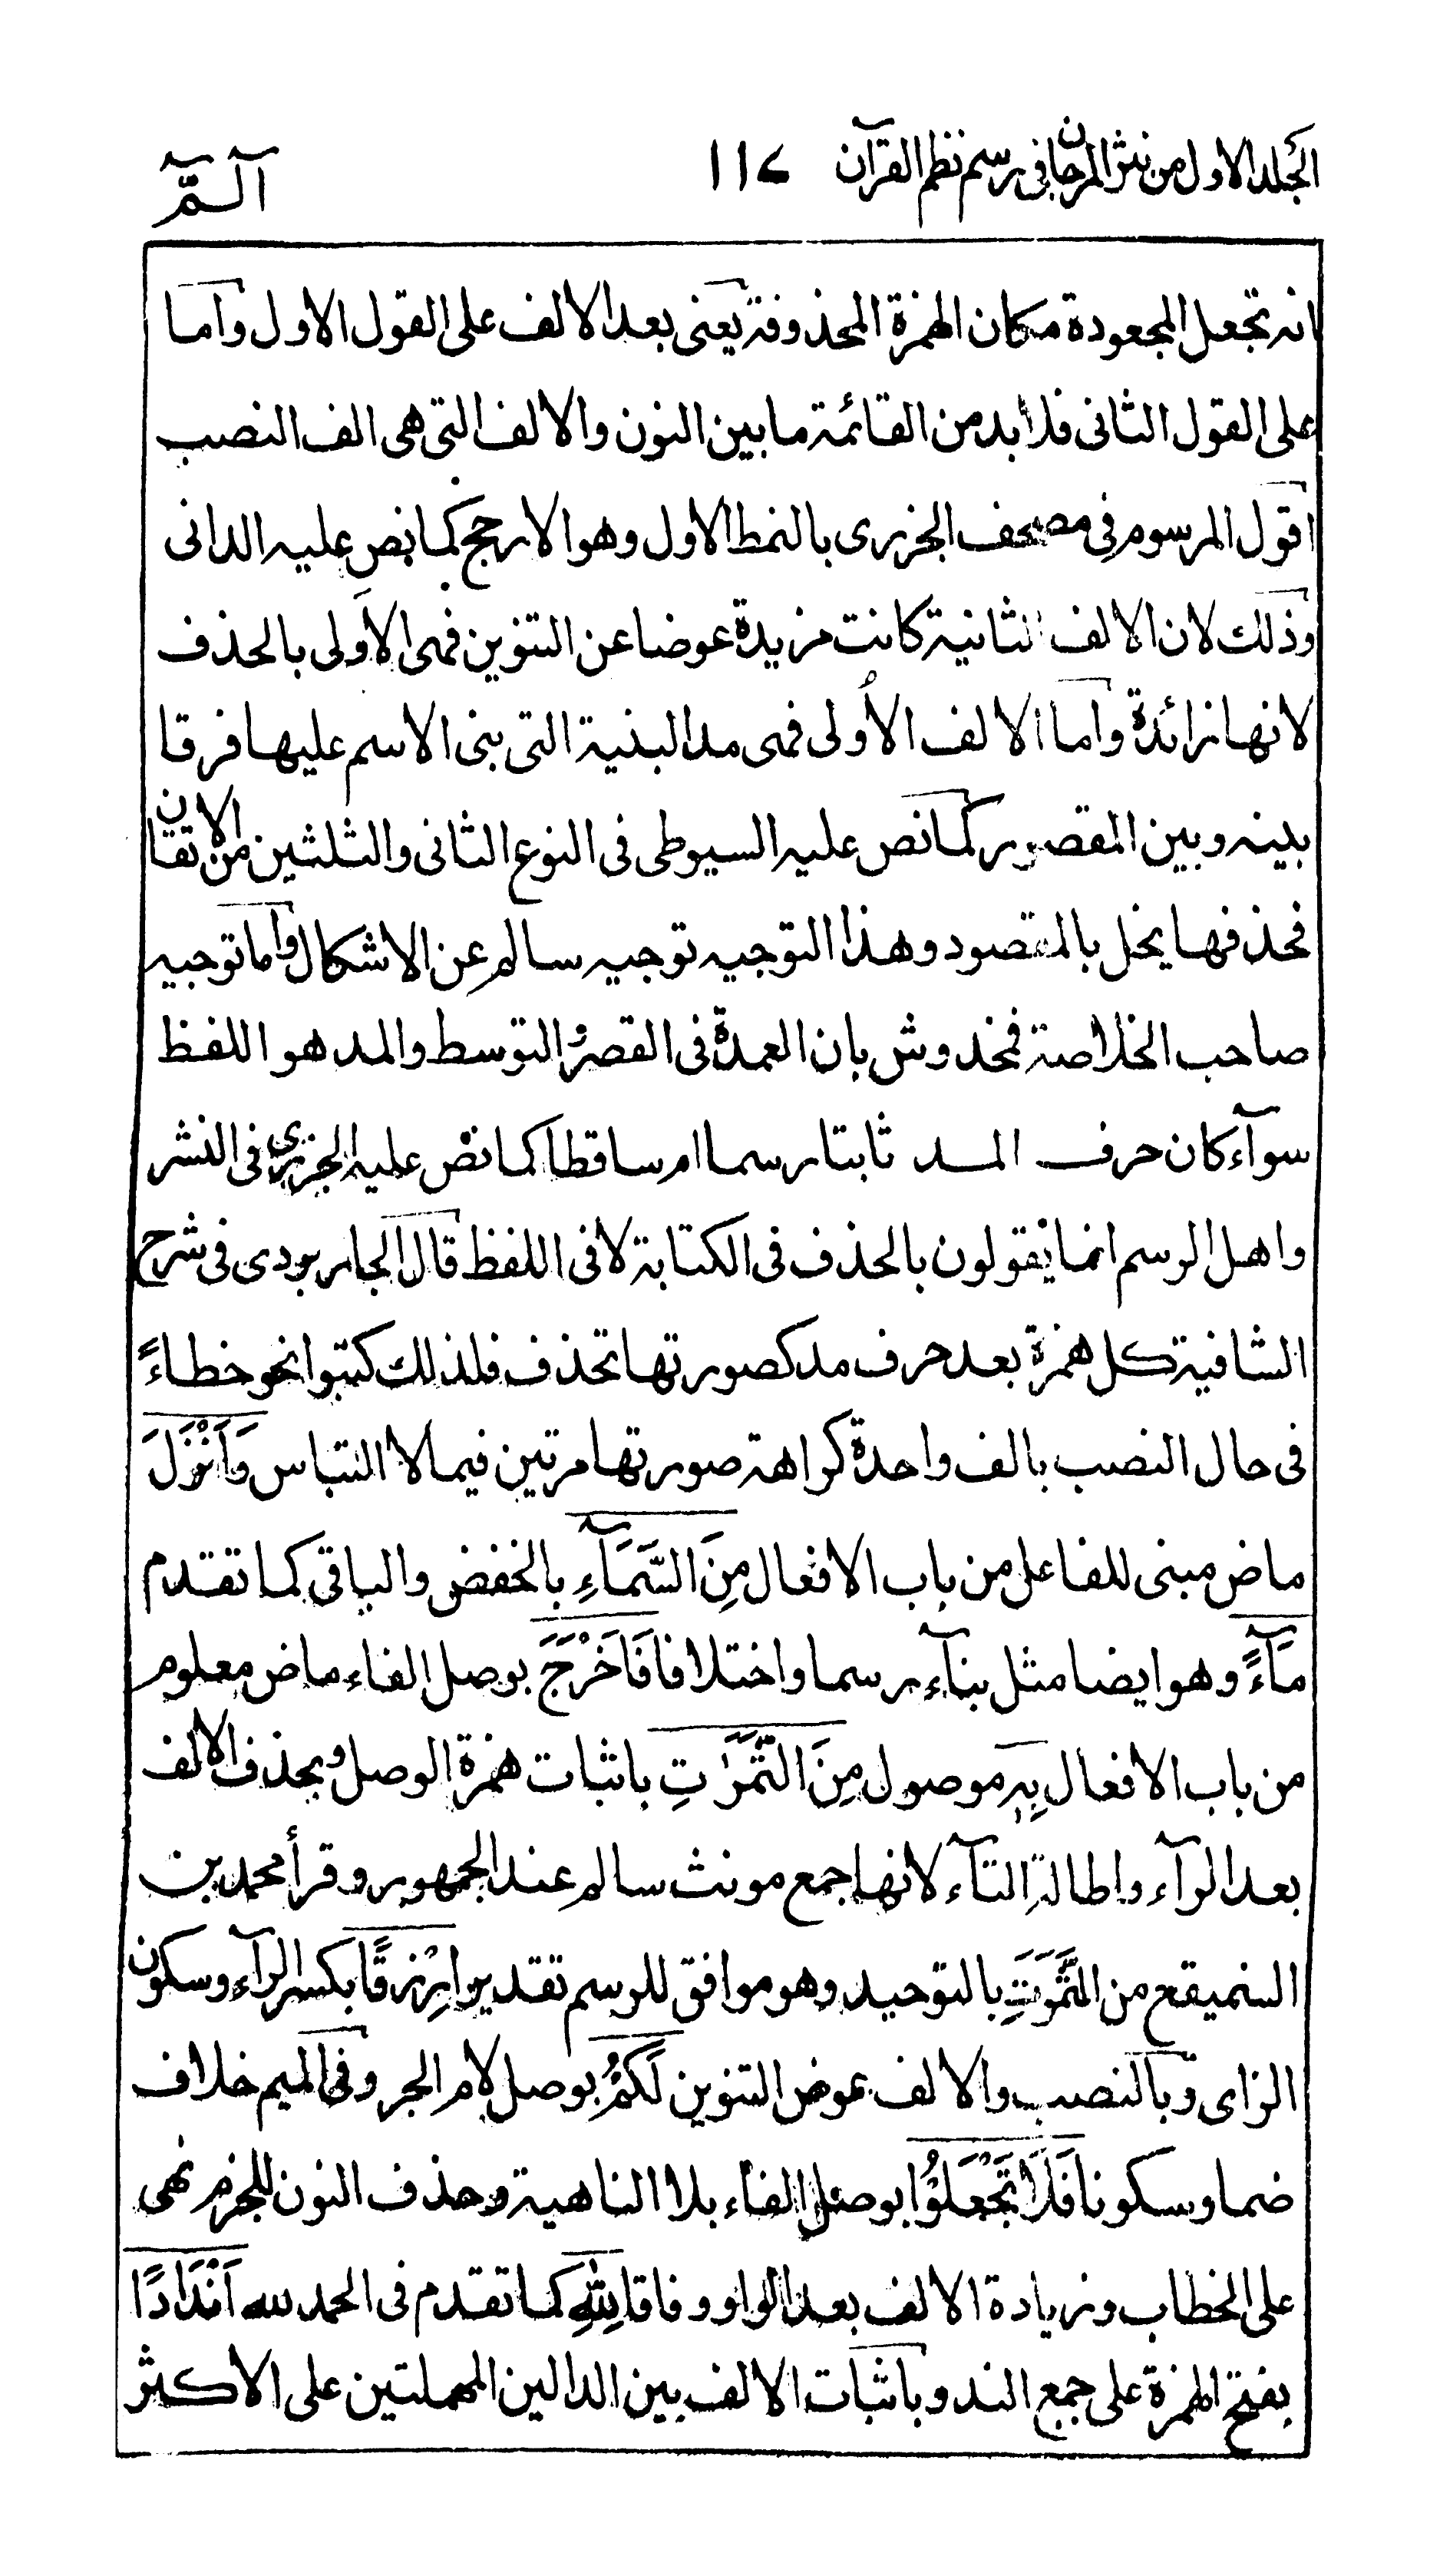 الجلد الاول من نثر المرجان فى رسم نظم القرآن ١١٧ الٓمّٓ
انه تجعل المجعودة مكان الهمزة المحذوفة يعنى بعد الالف على القول الاول واما
على القول الثانى فلا بد من القائمة ما بين النون والالف التى هى الف النصب
اقول المرسوم فى مصحف الجزرى بالنمط الاول وهو الارجح كما نص عليه الدانى
وذلك لان الالف الثانية كانت مزيدة عوضا عن التنوين فهى الاَولى بالحذف
لانها زائدة واما الالف الاُولى فهى مد البنية التى بنى الاسم عليها فرقا
بينه وبين المقصور كما نص عليه السيوطى فى النوع الثانى والثلثين من الاتقان
فحذفها يخل بالمقصود وهذا التوجيه توجيه سالم عن الاشكال واما توجيه
صاحب الخلاصة فمخدوش بان العمدة فى القصر والتوسط والمد هو اللفظ
سوآء كان حرف المد ثابتا رسما ام ساقطا كما نص عليه الجزرى فى النشر
واهل الرسم انما يقولون بالحذف فى الكتابة لا فى اللفظ قال الجاربودى فى شرح
الشافية كل همزة بعد حرف مد كصورتها تحذف فلذلك كتبوا نحو خطاءً
فى حال النصب بالف واحدة كراهة صورتها مرتين فيما لا التباس وَاَنْزَلَ
ماض مبنى للفاعل من باب الافعال مِنَ السَّمَآءِ بالخفض والباقى كما تقدم
مَآءً وهو ايضا مثل بنآء رسما واختلافا فَاَخْرَجَ بوصل الفاء ماض معلوم
من باب الافعال بِهٖ موصول مِنَ الثَّمَرٰتِ باثبات همزة الوصل وبحذف الالف
بعد الرآء واطالةِ التآء لانها جمع مونث سالم عند الجمهور وقرأ محمد بن
السميقع من الثَّمَرَتِ بالتوحيد وهو موافق للرسم تقديرا رِزْقًا بكسر الرآء وسكون
الزاى وبالنصب والالف عوض التنوين لَكُمْ بوصل لام الجر وفى الميم خلاف
ضما وسكونا فَلَا تَجْعَلُوْا بوصل الفآء بلا الناهية وحذف النون للجزم نهى
على الخطاب وزيادة الالف بعد الواو وفاقا لِلّٰهِ كما تقدم فى الحمد لله اَنْدَادًا
بفتح الهمزة على جمع الند وباثبات الالف بين الدالين المهملتين على الاكثر